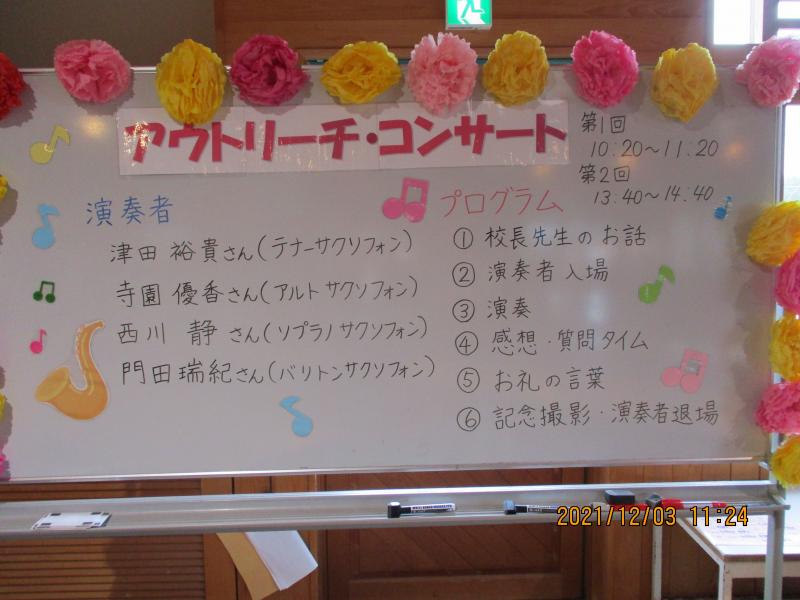 アウトリーチ・コンサート
第1回
10:20～11:20
第2回
13:40～14:40
演奏者
津田 裕貴さん(テナーサクソフォン)
寺園 優香さん(アルトサクソフォン)
西川 静さん(ソプラノサクソフォン)
門田瑞紀さん(バリトンサクソフォン)
プログラム
① 校長先生のお話
② 演奏者入場
③ 演奏
④ 感想・質問タイム
⑤ お礼の言葉
⑥ 記念撮影・演奏者退場
2021/12/03 11:24